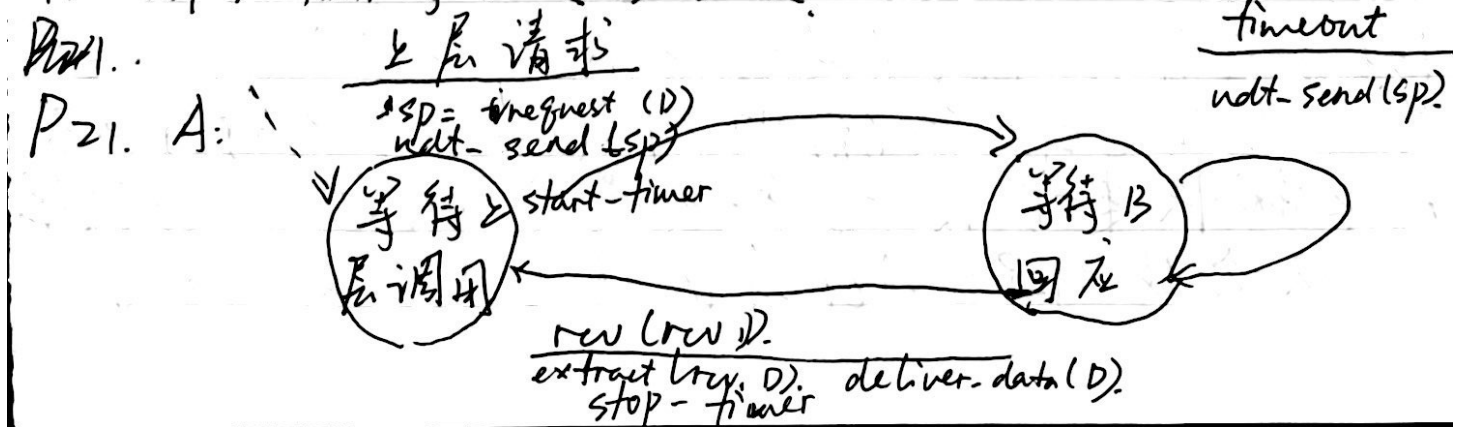 P21. A:
上层请求
sp= request (D)
udt- send (sp)
start-timer
timeout
udt-send(sp).
等待上
层调用
等待B
回应
rcv (rcv D).
extract (rcv, D). deliver-data(D).
stop-timer